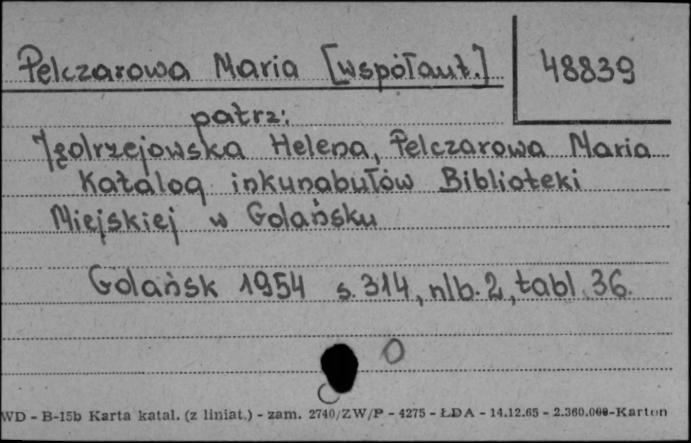 Pelczarowa Maria [współaut.]
48839
patrz:
Jędrzejowska Helena, Pelczarowa Maria
Katalog inkunabułów Biblioteki
Miejskiej w Gdańsku
Gdańsk 1954 s. 314, nlb. 2, tabl. 36.
0
WD - B-15b Karta katal. (z liniat.) - zam. 2740/ZW/P - 4275 - ŁDA - 14.12.65 - 2.360.000-Karton